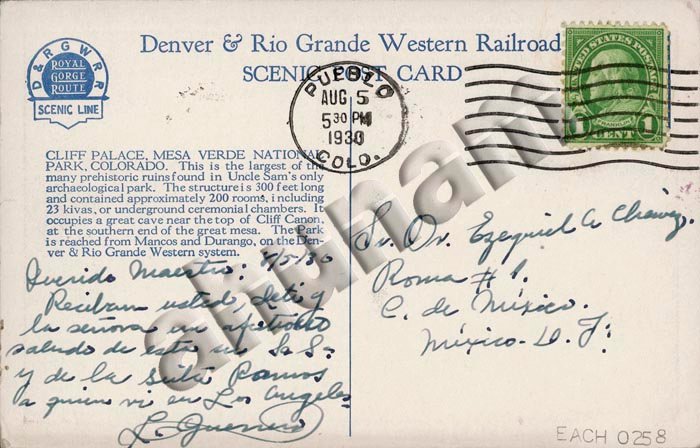 Denver & Rio Grande Western Railroad
SCENIC POST CARD
D & R G W R R
ROYAL
GORGE
ROUTE
SCENIC LINE
PUEBLO
AUG 5
5 30 PM
1930
COLO.
UNITED STATES POSTAGE
FRANKLIN
1 CENT 1
CLIFF PALACE, MESA VERDE NATIONAL
PARK, COLORADO. This is the largest of the
many prehistoric ruins found in Uncle Sam's only
archaeological park. The structure is 300 feet long
and contained approximately 200 rooms, including
23 kivas, or underground ceremonial chambers. It
occupies a great cave near the top of Cliff Canon,
at the southern end of the great mesa. The Park
is reached from Mancos and Durango, on the Den-
ver & Rio Grande Western system.
Querido Maestro: 8/5/30
Reciban usted, Leti y
la señora un afectuoso
saludo de este su S. S.
y de la Srita Ramos
a quien vi en Los Angeles
L. Guerrero
Sr. Dr. Ezequiel A. Chávez.
Roma # 1.
C. de México.
México - D. F.
ahdunam
EACH 0258